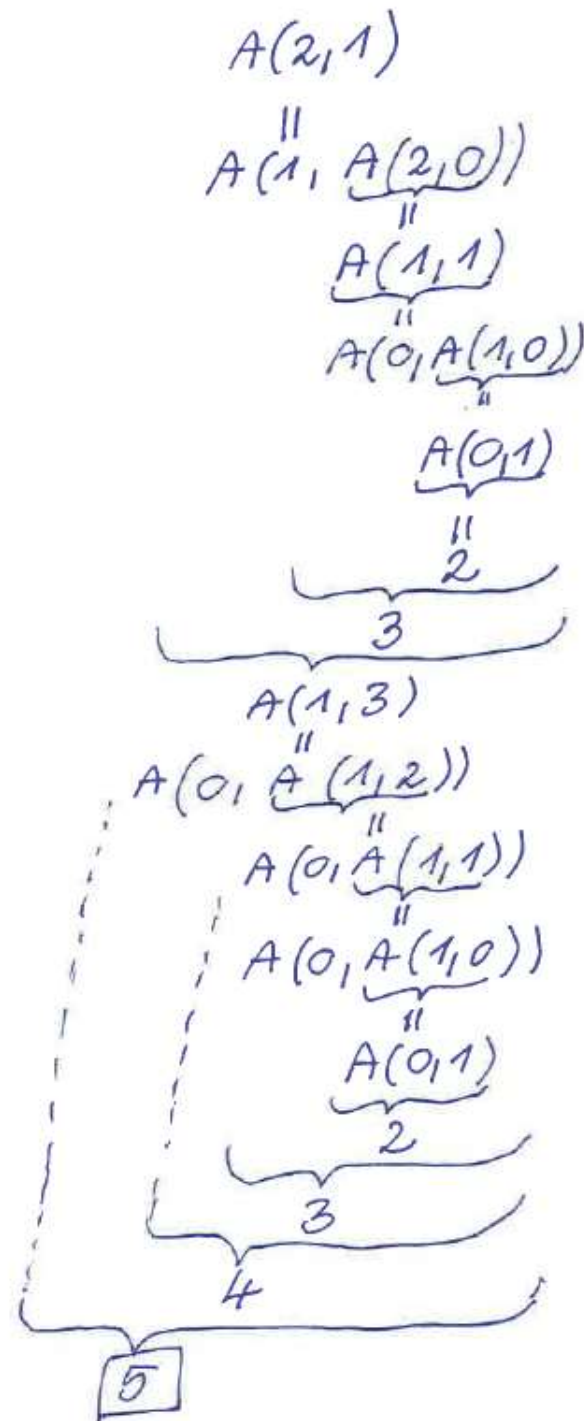 A(2,1)
=
A(1, A(2,0))
=
A(1,1)
=
A(0, A(1,0))
=
A(0,1)
=
2
3
A(1,3)
=
A(0, A(1,2))
=
A(0, A(1,1))
=
A(0, A(1,0))
=
A(0,1)
2
3
4
5